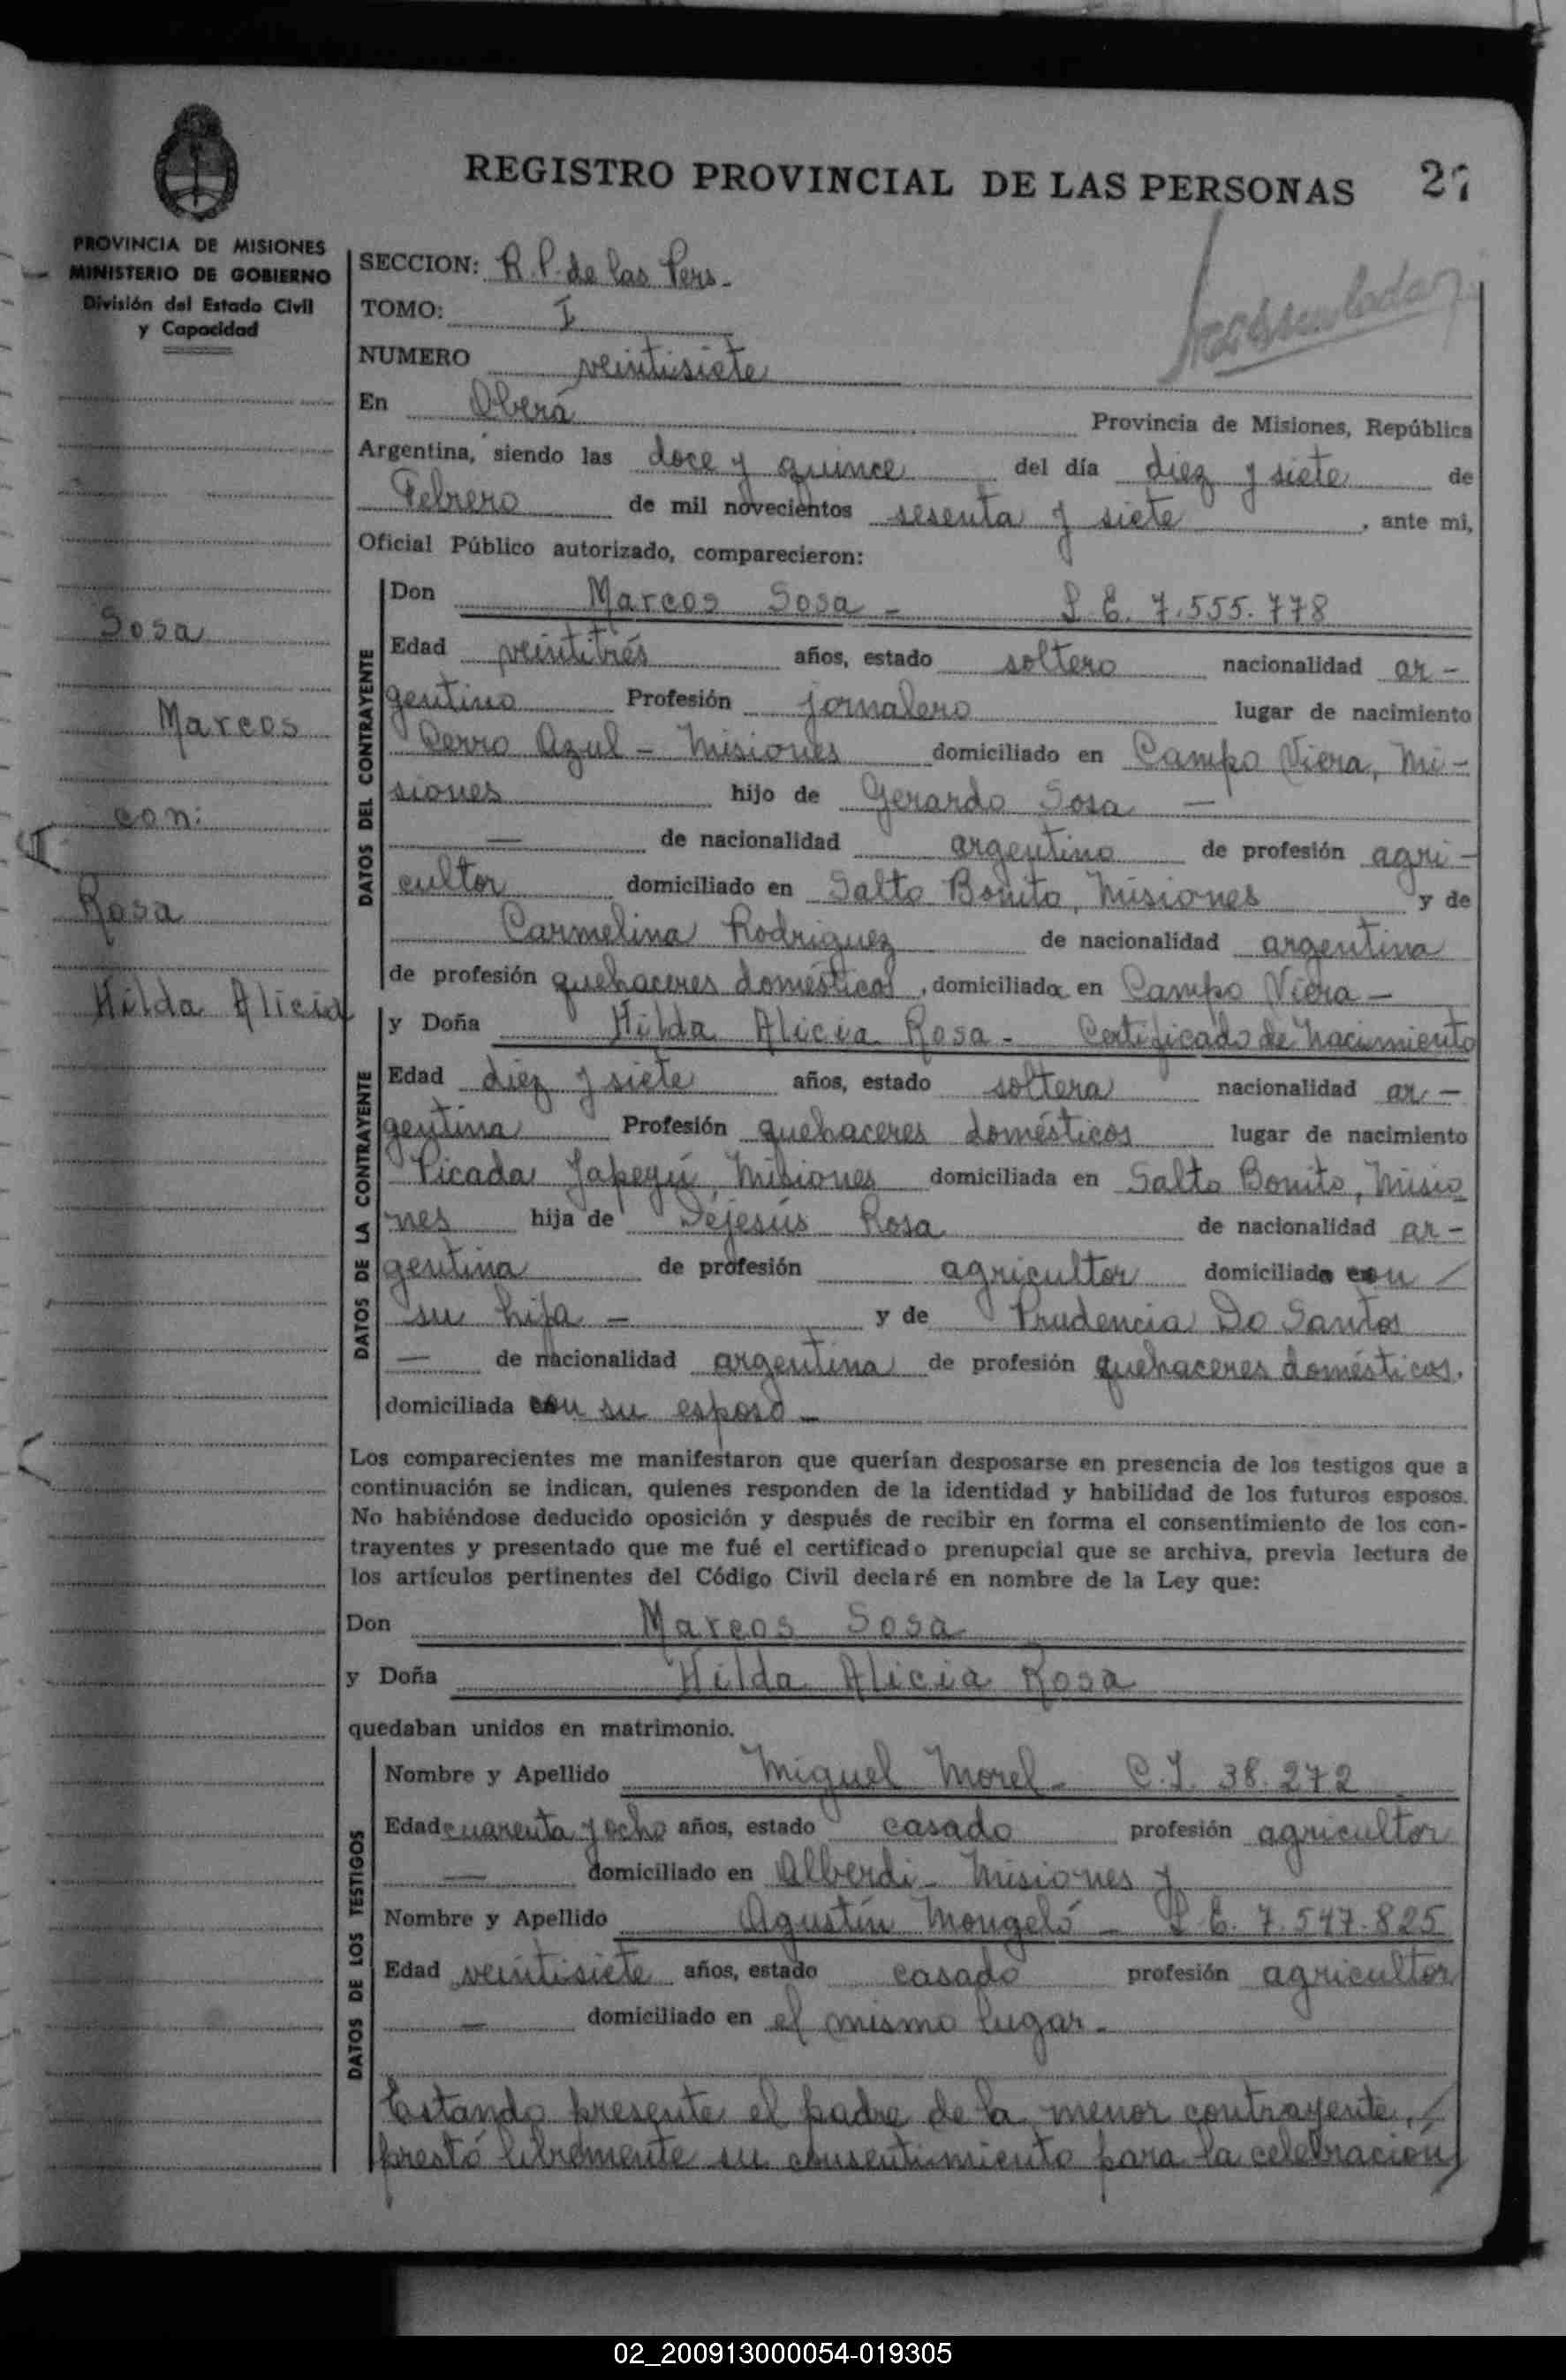 REGISTRO PROVINCIAL DE LAS PERSONAS 27
PROVINCIA DE MISIONES
MINISTERIO DE GOBIERNO
División del Estado Civil
y Capacidad
Sosa
Marcos
con:
Rosa
Hilda Alicia
SECCION: R. P. de las Pers.
TOMO: I
NUMERO veintisiete
En Oberá Provincia de Misiones, República
Argentina, siendo las doce y quince del día diez y siete de
Febrero de mil novecientos sesenta y siete, ante mi,
Oficial Público autorizado, comparecieron:
DATOS DEL CONTRAYENTE
Don Marcos Sosa - L. E. 7.555.778
Edad veintitrés años, estado soltero nacionalidad ar-
gentino Profesión jornalero lugar de nacimiento
Cerro Azul - Misiones domiciliado en Campo Viera, Mi-
siones hijo de Gerardo Sosa —
— de nacionalidad argentino de profesión agri-
cultor domiciliado en Salto Bonito, Misiones y de
Carmelina Rodriguez de nacionalidad argentina
de profesión quehaceres domésticos, domiciliada en Campo Viera -
DATOS DE LA CONTRAYENTE
y Doña Hilda Alicia Rosa - Certificado de nacimiento
Edad diez y siete años, estado soltera nacionalidad ar-
gentina Profesión quehaceres domésticos lugar de nacimiento
Picada Yapeyú, Misiones domiciliada en Salto Bonito, Misio
nes hija de Dejesús Rosa de nacionalidad ar-
gentina de profesión agricultor domiciliado con /
su hija - y de Prudencia Do Santos
— de nacionalidad argentina de profesión quehaceres domésticos.
domiciliada con su esposo -
Los comparecientes me manifestaron que querían desposarse en presencia de los testigos que a
continuación se indican, quienes responden de la identidad y habilidad de los futuros esposos.
No habiéndose deducido oposición y después de recibir en forma el consentimiento de los con-
trayentes y presentado que me fué el certificado prenupcial que se archiva, previa lectura de
los artículos pertinentes del Código Civil declaré en nombre de la Ley que:
Don Marcos Sosa
y Doña Hilda Alicia Rosa
quedaban unidos en matrimonio.
DATOS DE LOS TESTIGOS
Nombre y Apellido Miguel Morel - C.I. 38.272
Edad cuarenta y ocho años, estado casado profesión agricultor
— domiciliado en Alberdi - Misiones y
Nombre y Apellido Agustín Mongeló - L. E. 7.547.825
Edad veintisiete años, estado casado profesión agricultor
— domiciliado en el mismo lugar.-
Estando presente el padre de la menor contrayente, /
prestó libremente su consentimiento para la celebración /
02_200913000054-019305